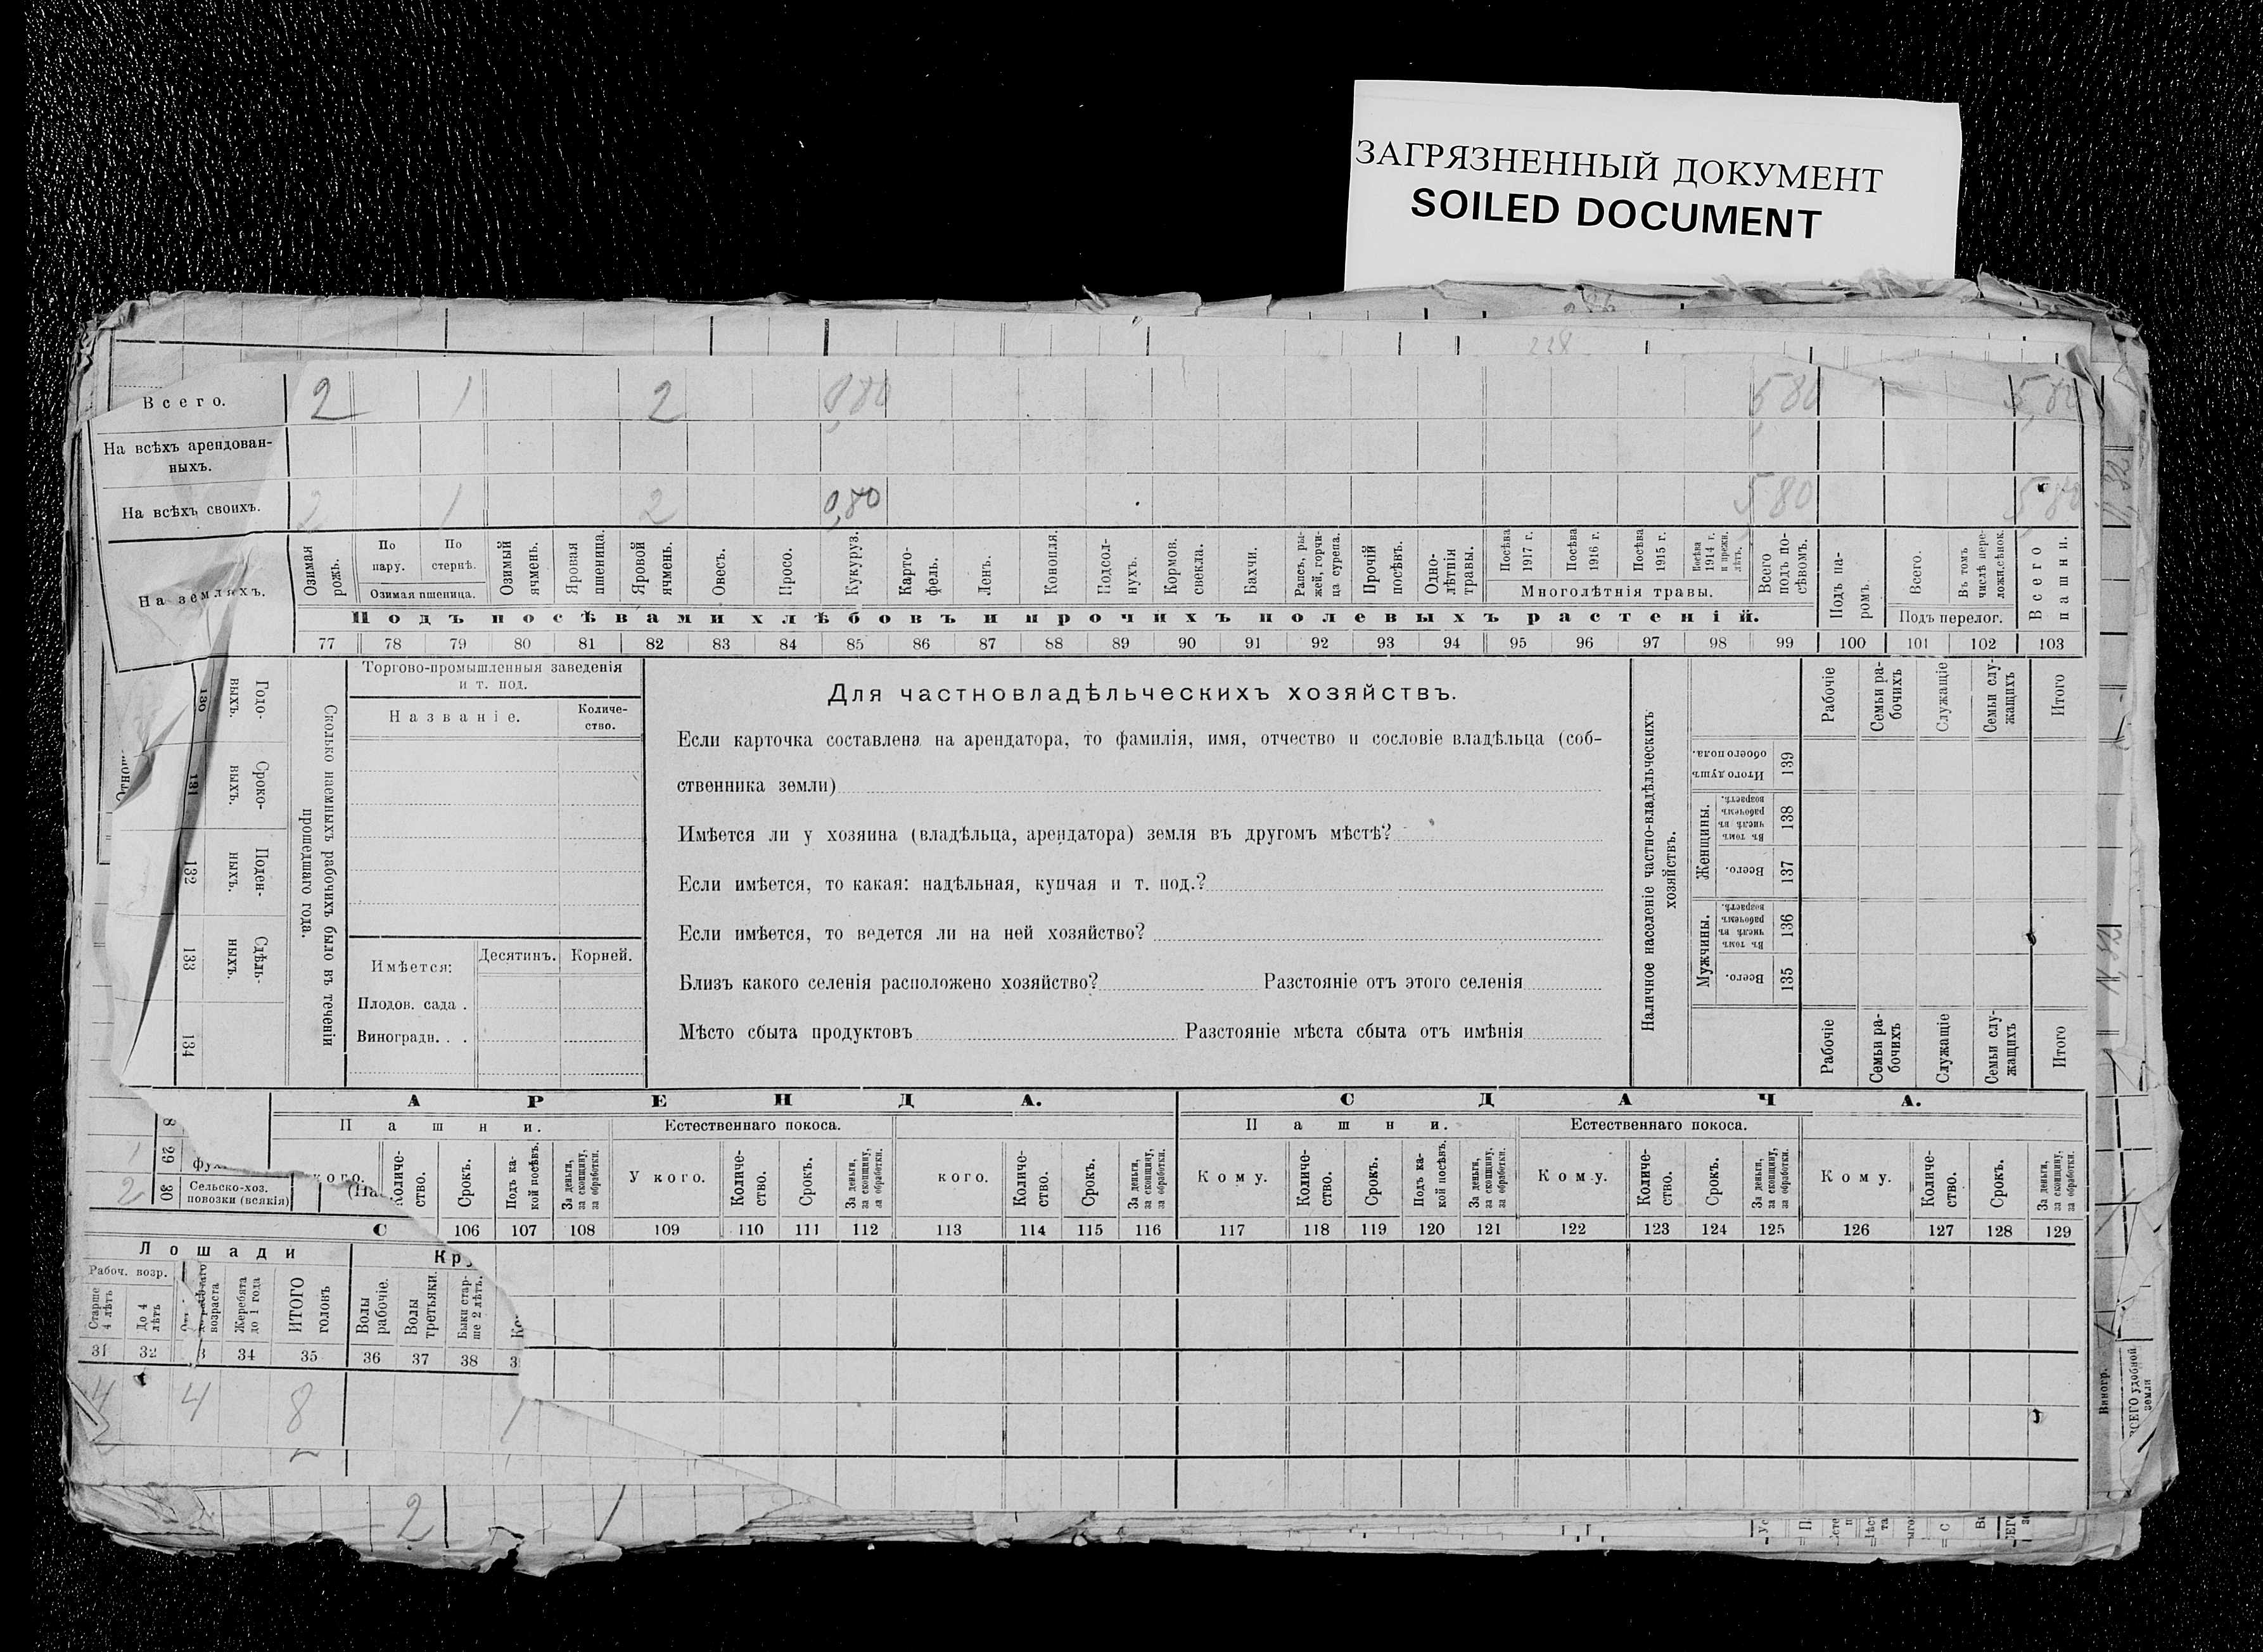 ЗАГРЯЗНЕННЫЙ ДОКУМЕНТ
SOILED DOCUMENT
228
Всего. 2 1 2 0,80 5 80 5,80
На всѣхъ арендован-
ныхъ.
На всѣхъ своихъ. 2 1 2 0,80 5 80 5 80
На земляхъ.
Озимая рожь.
По пару.
По стернѣ.
Озимая пшеница.
Озимый ячмень.
Яровая пшеница.
Яровой ячмень.
Овесъ.
Просо.
Кукуруз.
Карто-
фель.
Ленъ.
Конопля.
Подсол-
нухъ.
Кормов. свекла.
Бахчи.
Рапсъ, ры-
жей, горчи-
ца сурепа.
Прочій посѣвъ.
Одно-
лѣтнія травы.
Посѣва 1917 г.
Посѣва 1916 г.
Посѣва 1915 г.
Посѣва 1914 г. и прежн. лѣтъ.
Многолѣтнія травы.
Всего подъ по-
сѣвомъ.
Подъ па-
ромъ.
Всего.
Въ томъ числѣ пере-
ложн. сѣнок.
Подъ перелог.
Всего пашни.
Подъ посѣвами хлѣбовъ и прочихъ полевыхъ растеній.
77 78 79 80 81 82 83 84 85 86 87 88 89 90 91 92 93 94 95 96 97 98 99 100 101 102 103
130 Годо-
выхъ.
131 Сроко-
выхъ.
132 Поден-
ныхъ.
133 Сдѣль-
ныхъ.
134
Сколько наемныхъ рабочихъ было въ теченіи
прошедшаго года.
Торгово-промышленныя заведенія
и т. под.
Названіе.
Количе-
ство.
Имѣется:
Десятинъ. Корней.
Плодов. сада .
Виноградн. . .
Для частновладѣльческихъ хозяйствъ.
Если карточка составлена на арендатора, то фамилія, имя, отчество и сословіе владѣльца (соб-
ственника земли)
Имѣется ли у хозяина (владѣльца, арендатора) земля въ другомъ мѣстѣ?
Если имѣется, то какая: надѣльная, купчая и т. под.?
Если имѣется, то ведется ли на ней хозяйство?
Близъ какого селенія расположено хозяйство? Разстояніе отъ этого селенія
Мѣсто сбыта продуктовъ Разстояніе мѣста сбыта отъ имѣнія
Наличное населеніе частно-владѣльческихъ
хозяйствъ.
Рабочіе
Семьи ра-
бочихъ
Служащіе
Семьи слу-
жащихъ
Итого
Итого душъ обоего пола. 139
Женщины.
Въ томъ числѣ въ рабочемъ возрастѣ. 138
Всего. 137
Мужчины.
Въ томъ числѣ въ рабочемъ возрастѣ. 136
Всего. 135
Рабочіе
Семьи ра-
бочихъ
Служащіе
Семьи слу-
жащихъ
Итого
АРЕНДА.
СДАЧА.
Пашни.
Естественнаго покоса.
Пашни.
Естественнаго покоса.
кого.
Количе-
ство.
Срокъ.
Подъ ка-
кой посѣвъ.
За деньги, за скопщину, за обработки.
У кого.
Количе-
ство.
Срокъ.
За деньги, за скопщину, за обработки.
кого.
Количе-
ство.
Срокъ.
За деньги, за скопщину, за обработки.
Кому.
Количе-
ство.
Срокъ.
Подъ ка-
кой посѣвъ.
За деньги, за скопщину, за обработки.
Кому.
Количе-
ство.
Срокъ.
За деньги, за скопщину, за обработки.
Кому.
Количе-
ство.
Срокъ.
За деньги, за скопщину, за обработки.
106 107 108 109 110 111 112 113 114 115 116 117 118 119 120 121 122 123 124 125 126 127 128 129
1 29
2 30 Сельско-хоз.
повозки (всякія)
С
Лошади
Кру
Рабоч. возр.
Старше 4 лѣтъ
До 4 лѣтъ
возраста
Жеребята до 1 года
ИТОГО головъ
Волы рабочіе.
Волы третьяки.
Быки стар-
ше 2 лѣтъ.
31 32 3 34 35 36 37 38 3
4 4 8 1
2 1
Виногр.
ВСЕГО удобной
земли